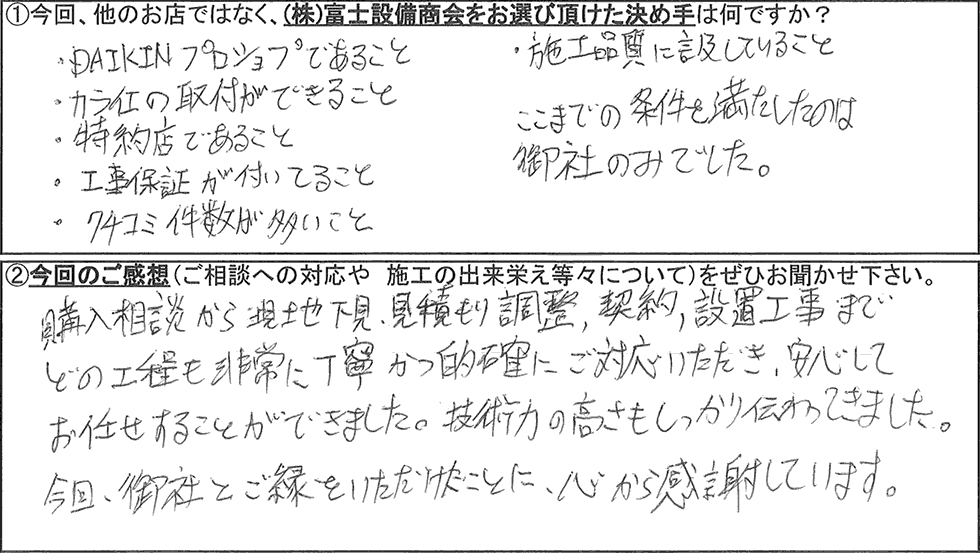 ①今回、他のお店ではなく、(株)富士設備商会をお選び頂けた決め手は何ですか？
・DAIKINプロショップであること
・カライエの取付ができること
・特約店であること
・工事保証が付いてること
・クチコミ件数が多いこと
・施工品質に言及していること
ここまでの条件を満たしたのは
御社のみでした。
②今回のご感想(ご相談への対応や 施工の出来栄え等々について)をぜひお聞かせ下さい。
購入相談から現地下見、見積もり調整，契約，設置工事まで
どの工程も非常に丁寧かつ的確にご対応いただき、安心して
お任せすることができました。技術力の高さもしっかり伝わってきました。
今回、御社とご縁をいただけたことに、心から感謝しています。